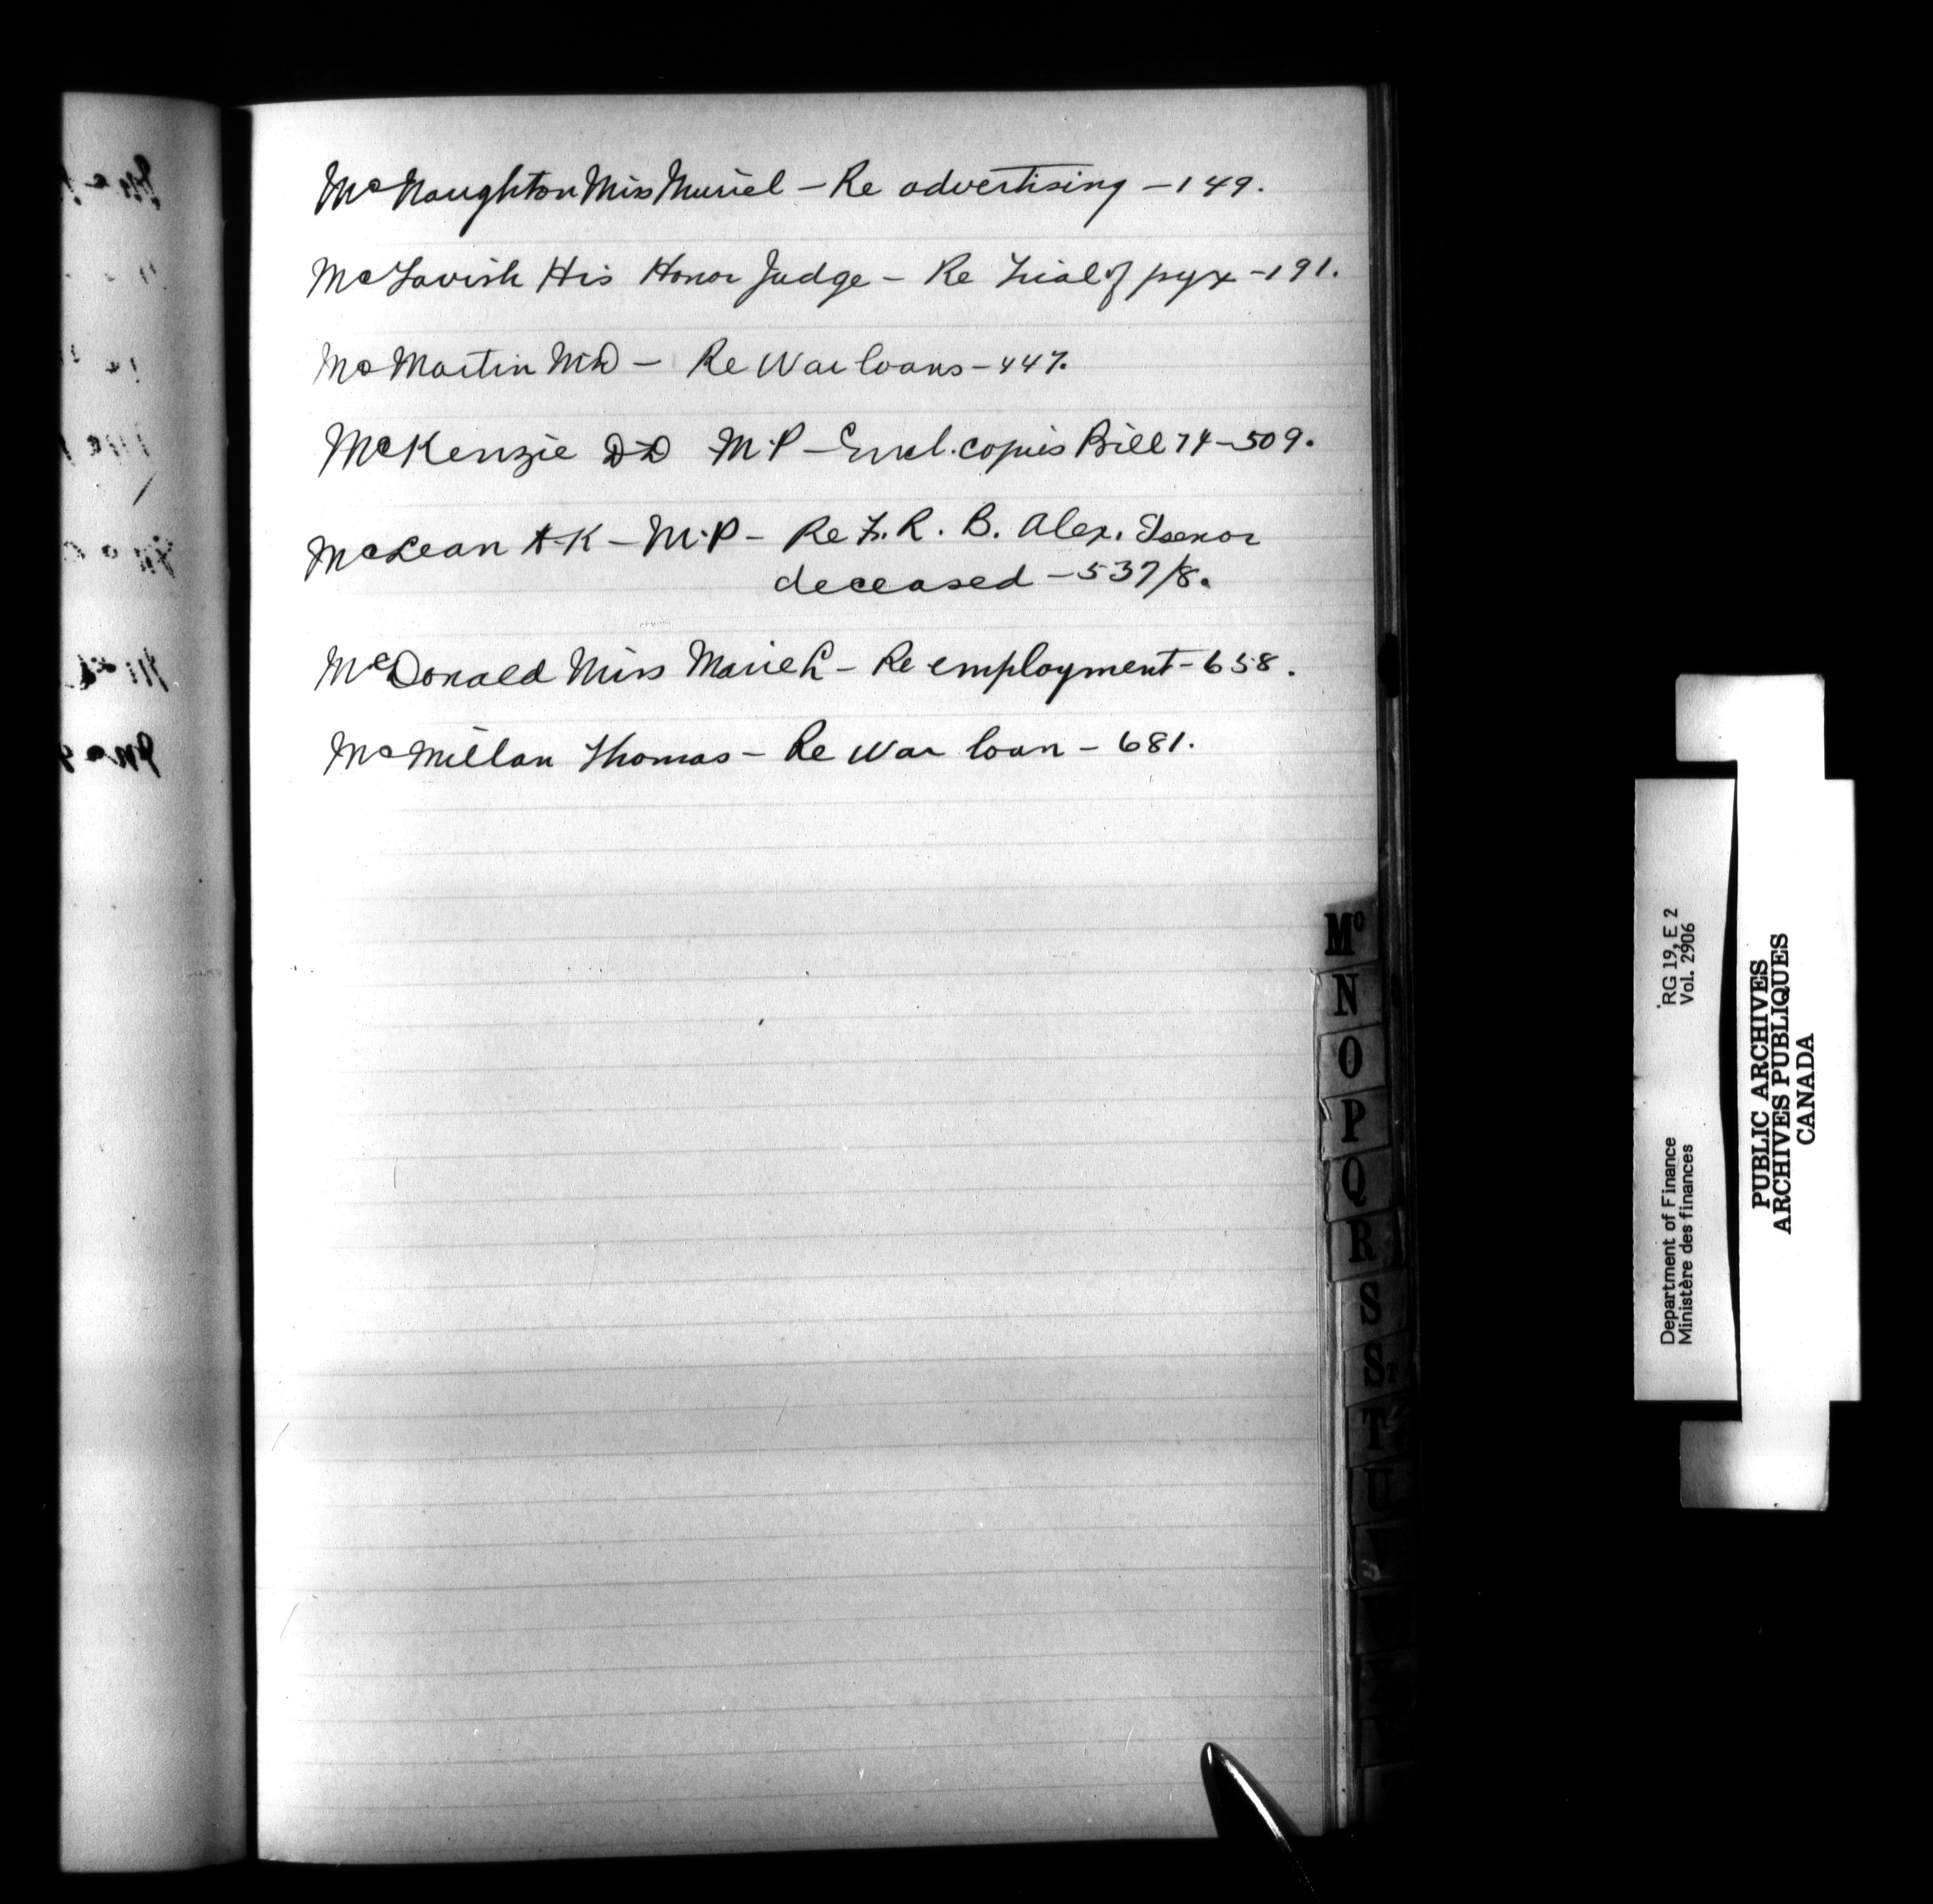 McNaughton Miss Muriel - Re advertising - 149.
McTavish His Honor Judge - Re Trial of pyx - 191.
McMartin M.D - Re War loans - 447.
McKenzie D.D M.P - Encl. copies Bill 74 - 509.
McLean A.K - M.P - Re F. R. B. Alex. Isenor
deceased - 537/8.
McDonald Miss Marie L - Re employment - 658.
McMillan Thomas - Re War loan - 681.
Mc
N
O
P
Q
R
S
S
T
U
V
RG 19, E 2
Vol. 2906
Department of Finance
Ministère des finances
PUBLIC ARCHIVES
ARCHIVES PUBLIQUES
CANADA